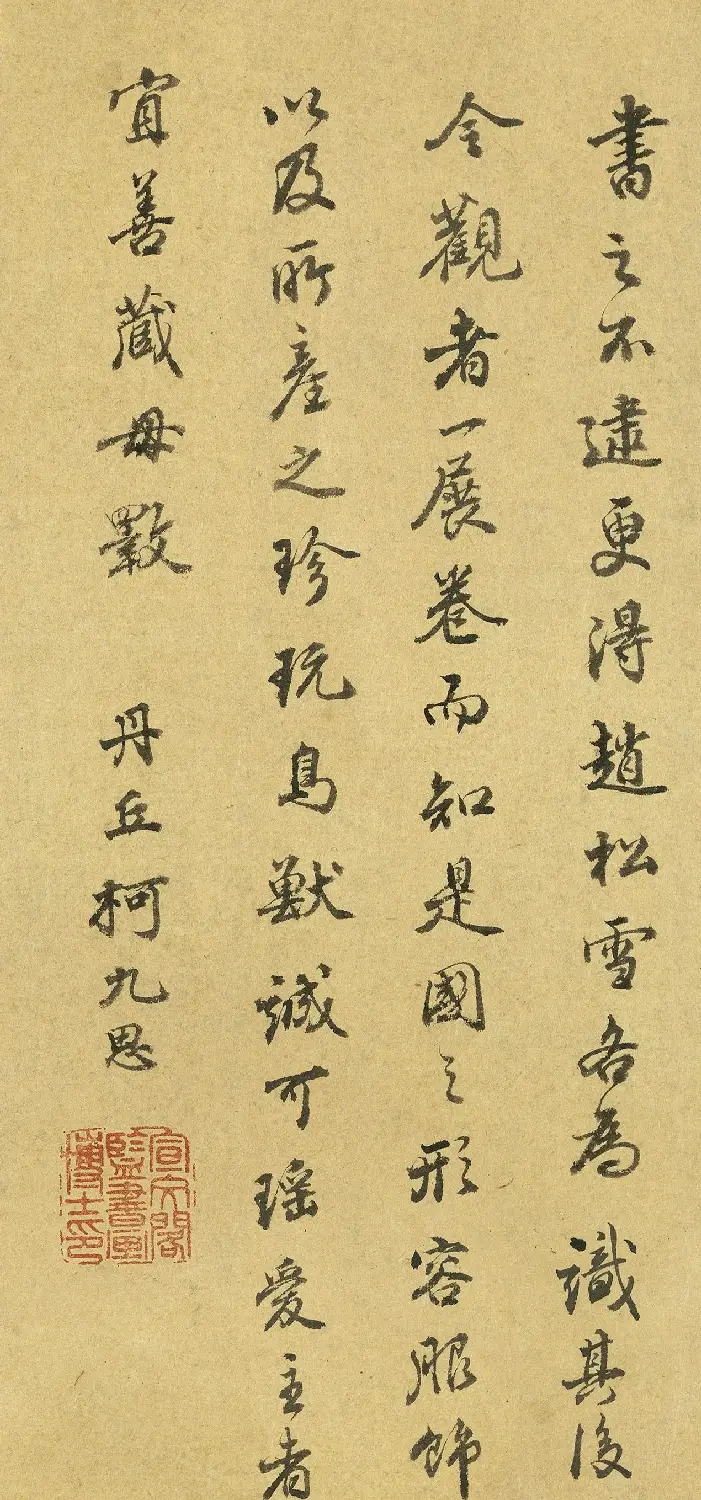 書之不逮更得趙松雪各為識其後
令觀者一展卷而知是國之形容服飾
以及所產之珍玩鳥獸誠可瑶愛主者
宜善藏毋斁 丹丘柯九思
宣文閣
監書畫
博士印